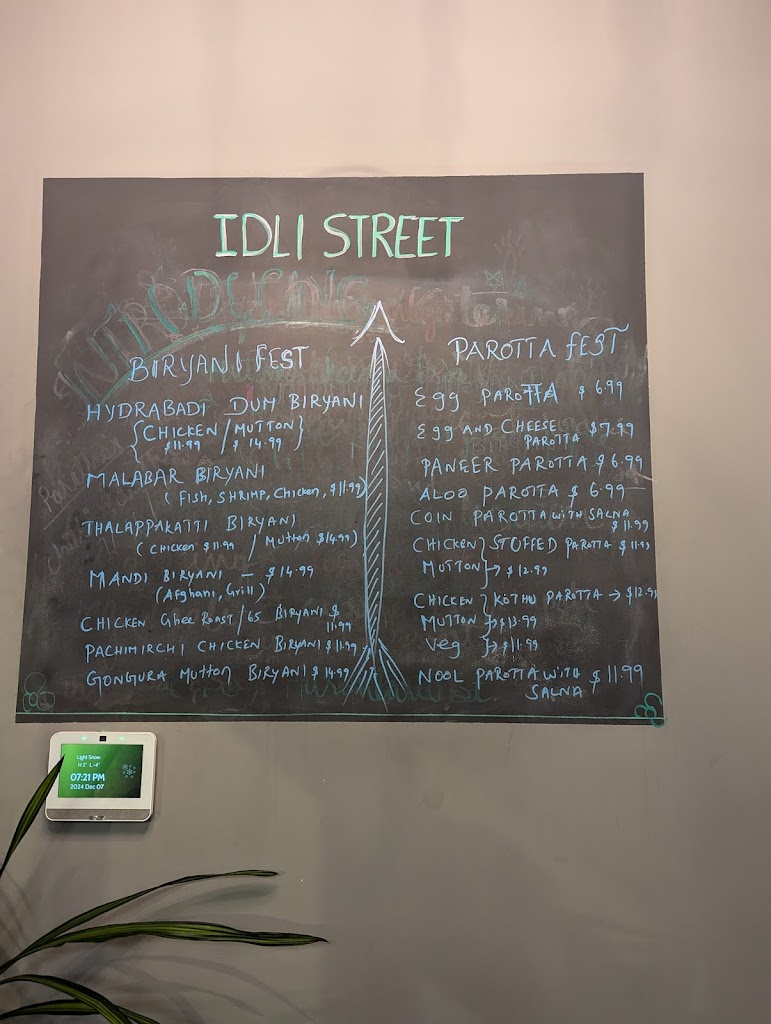 IDLI STREET
INTRODUCING
BIRYANI FEST
HYDRABADI DUM BIRYANI
{CHICKEN / MUTTON}
$11.99 $ 14.99
MALABAR BIRYANI
(Fish, SHRIMP, Chicken, $11.99)
THALAPPAKATTI BIRYANI
(Chicken $11.99 / Mutton $14.99)
MANDI BIRYANI - $14.99
(Afghani, Grill)
CHICKEN Ghee ROAST/65 BIRYANI $
11.99
PACHIMIRCHI CHICKEN BIRYANI $11.99
GONGURA MUTTON BIRYANI $14.99
PAROTTA FEST
Egg PAROTTA $ 6.99
EGG AND CHEESE
PAROTTA $7.99
PANEER PAROTTA $6.99
ALOO PAROTTA $ 6.99
COIN PAROTTA WITH SALNA
$11.99
CHICKEN} STOFFED PAROTTA $ 11.99
MUTTON}→ $12.99
CHICKEN } KOTHU PAROTTA → $12.99
MUTTON }→$13.99
Veg }→$11.99
NOOL PAROTTA WITH
SALNA $11.99
Light Snow
H 2° L -4°
07:21 PM
2024 Dec 07